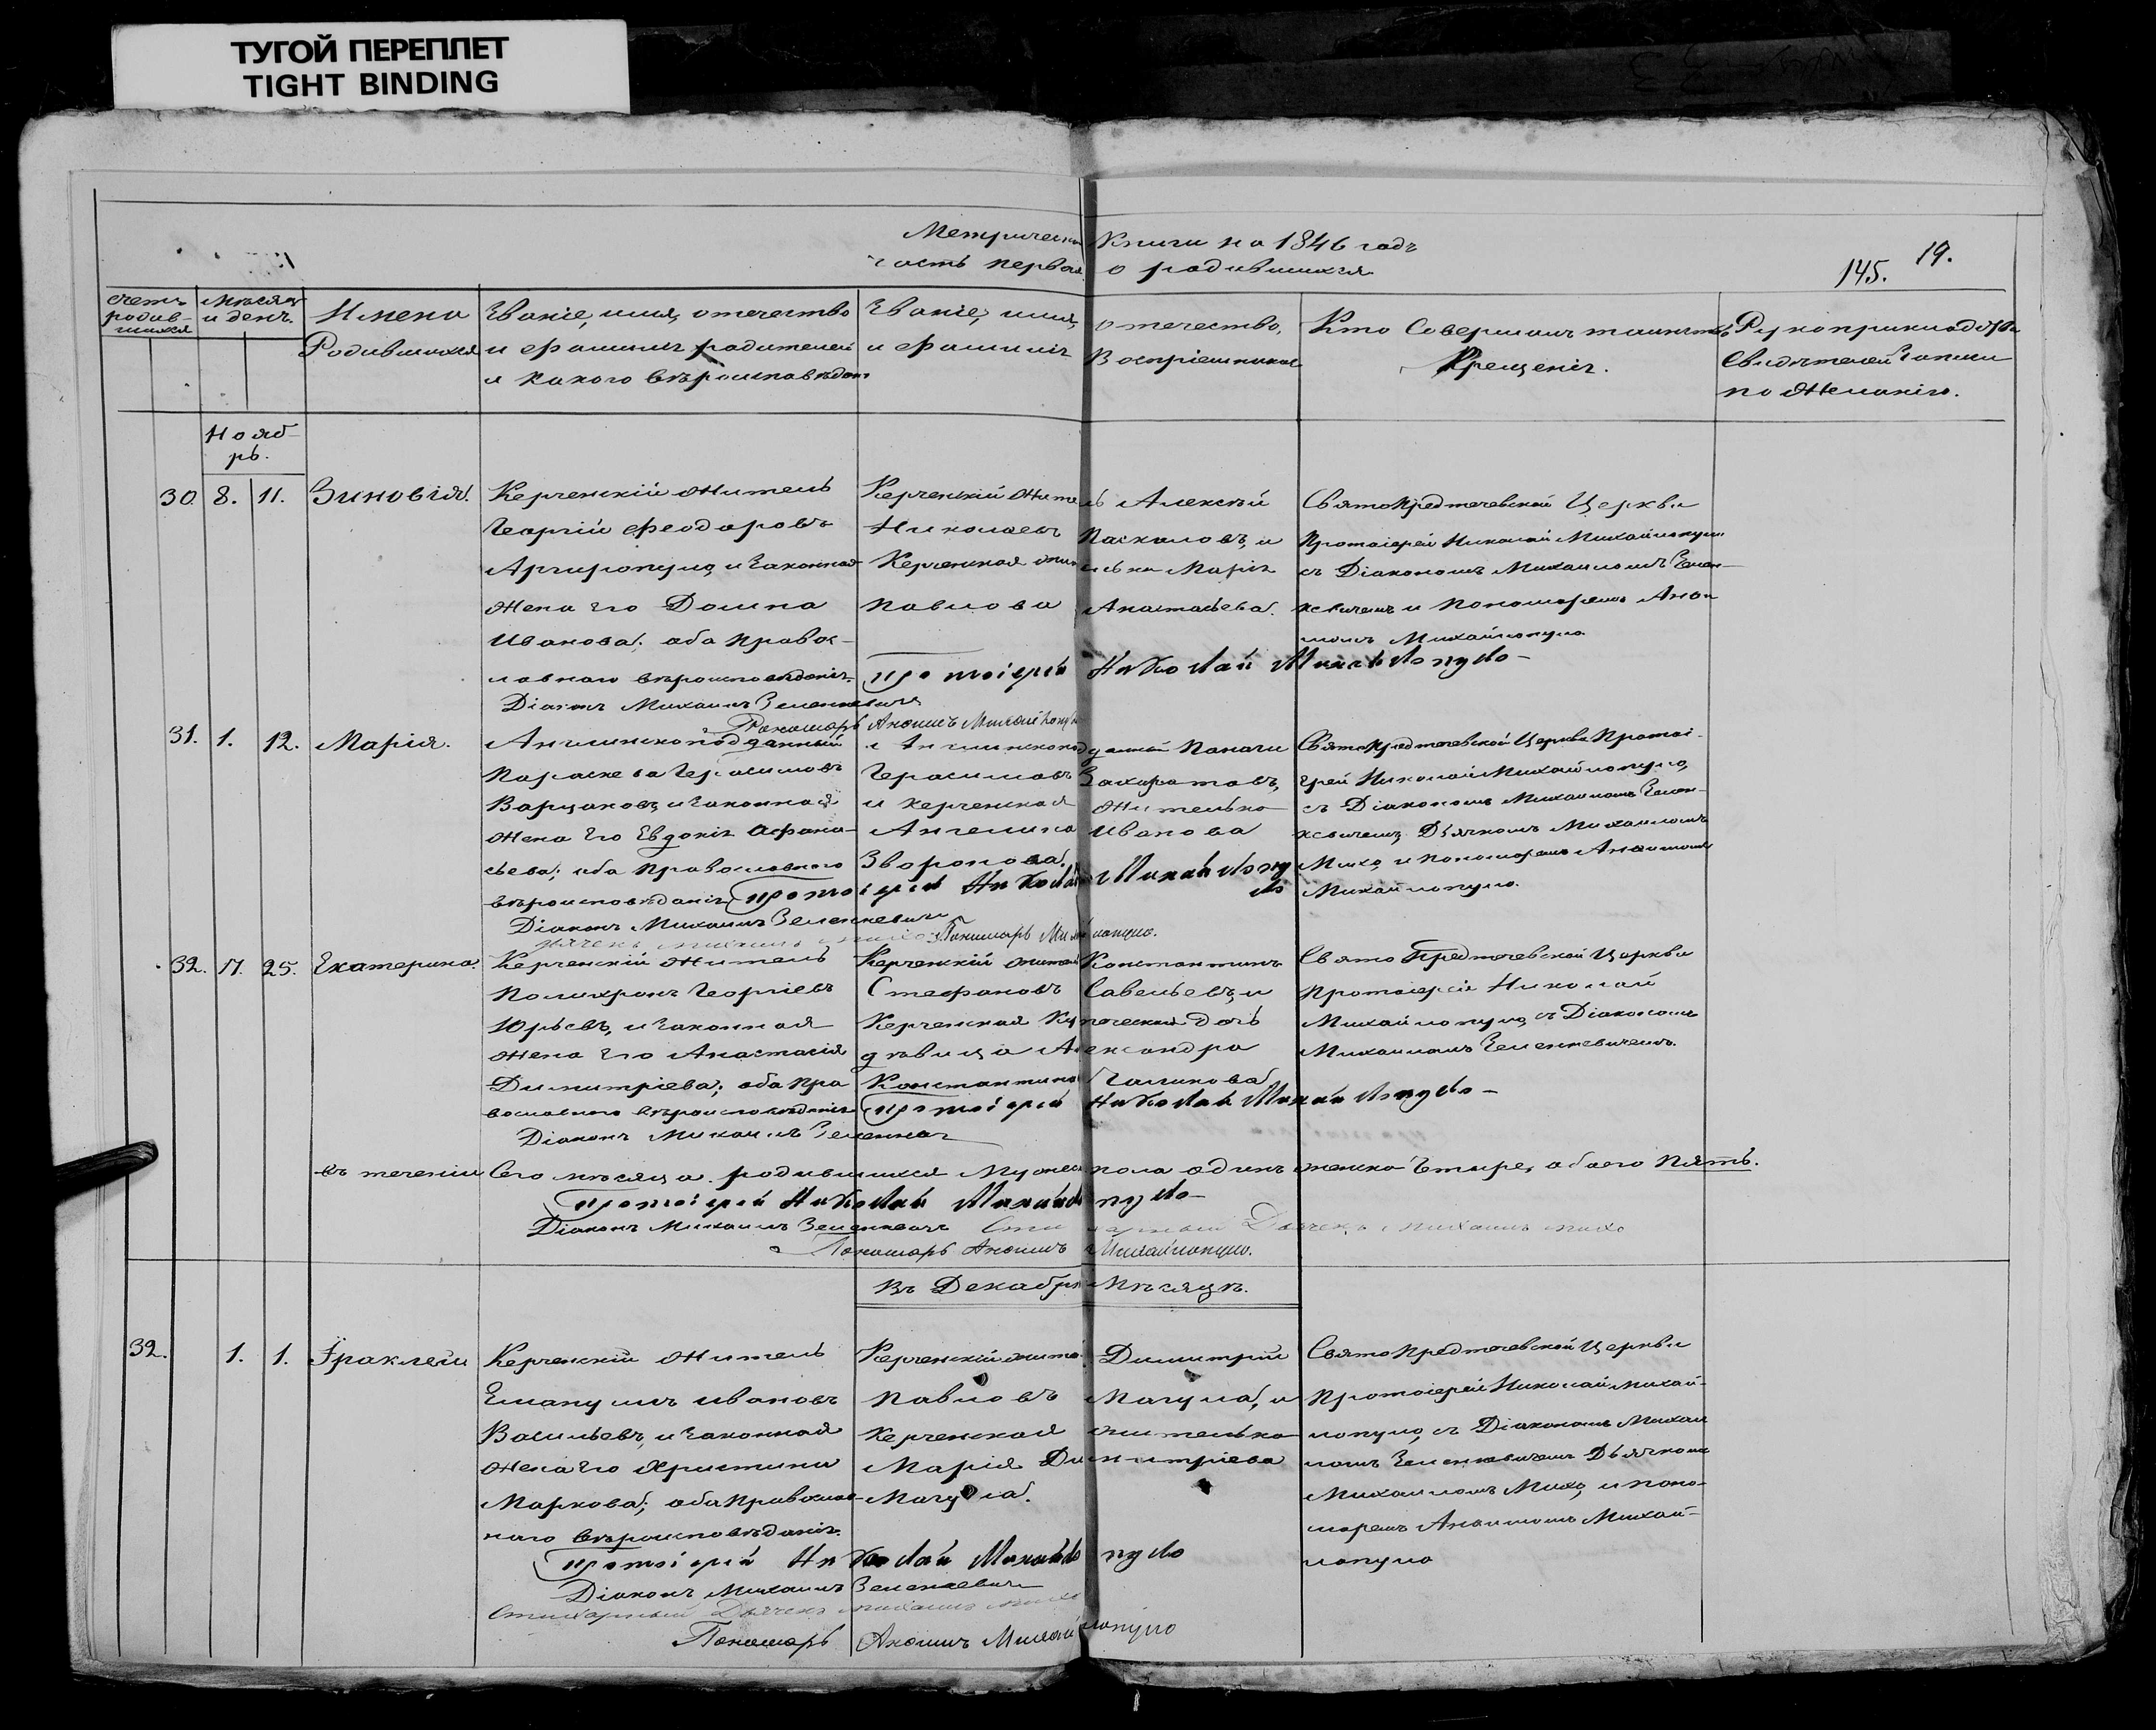 ТУГОЙ ПЕРЕПЛЕТ
TIGHT BINDING
Метрической Книги на 1846 годъ
часть первая о родившихся
145. 19.
Счетъ родив-шихся
Мѣсяцъ и день.
Имена Родившихся
Званіе, имя, отечество
и фамилія родителей
и какого вѣроисповѣданія
Званіе, имя, отечество,
и фамилія Воспріемниковъ
Кто Совершалъ таинство
Крещенія.
Рукоприкладство
Свидѣтелей записи
по желанію.
Нояб-
рь.
30. 8. 11. Зиновія.
Керченскій житель
Георгій Феодоровъ
Аргиропуло, и законная
жена его Домна
Иванова; оба правос-
лавнаго вѣроисповѣданія.
Керченскій житель Алексѣй
Николаевъ Паскаловъ, и
Керченская жителька Марія
Павлова Анастасьева.
СвятоПредтечевской Церкви
Протоіерей Николай Михайлопуло
съ Діакономъ Михаиломъ Зелен-
кевичемъ и Пономаремъ Анан-
Михайлопуло.
Протоіерей Николай Михайлопуло
Діаконъ Михаилъ Зеленкевичъ
Пономарь Михайлопуло
31. 1. 12. Марія.
Англинскоподданный
Параскева Герасимовъ
и законная
жена его Евдокія Афана-
сьева; оба Православнаго
вѣроисповѣданія
Англинскоподданный Панаги
Герасимовъ
и керченская жителька
Ангелина Иванова
Зворонова.
СвятоПредтечевской Церкви Протоі-
ерей Николай Михайлопуло,
съ Діакономъ Михаиломъ Зелен-
кевичемъ, Дьячкомъ Михаиломъ
Михо, и пономаремъ
Михайлопуло.
Протоіерей Николай Михайлопуло
Діаконъ Михаилъ Зеленкевичъ
Дячекъ Михаилъ Михо Пономарь Михайлопуло.
32. 17. 25. Екатерина.
Керченскій житель
Полихронъ Георгіевъ
Юрьевъ, и законная
жена его Анастасія
Димитріева; оба Пра
вославнаго вѣроисповѣданія
Керченскій житель Константинъ
Стефановъ Савельевъ, и
Керченская Купеческая дочь
дѣвица Александра
Константинова
СвятоПредтечевской Церкви
Протоіерей Николай
Михайлопуло, съ Діакономъ
Михаиломъ Зеленкевичемъ.
Протоіерей Николай Михайлопуло
Діаконъ Михаилъ
въ теченіи Сего мѣсяца родившихся Мужеска пола одинъ женска Четыре, обоего Пять.
Протоіерей Николай Михайлопуло
Діаконъ Михаилъ Зеленкевичъ Стихарный Дьячекъ Михаилъ Михо
Пономарь Михайлопуло.
Въ Декабрѣ Мѣсяцѣ.
32. 1. 1. Ираклей
Керченскій житель
Емануилъ Ивановъ
Васильевъ, и законная
жена его Христина
Маркова; оба Православ-
наго вѣроисповѣданія.
Керченскій житель Димитрій
Павловъ Магула, и
Керченская жителька
Марія Димитріева
Магула.
СвятоПредтечевской Церкви
Протоіерей Николай Михай-
лопуло, съ Діакономъ Михаи
ломъ Зеленкевичемъ Дьячкомъ
Михаиломъ Михо, и поно-
маремъ Михай-
лопуло
Протоіерей Николай Михайлопуло
Діаконъ Михаилъ Зеленкевичъ
Стихарный Дьячекъ Михаилъ Михо
Пономарь Михайлопуло